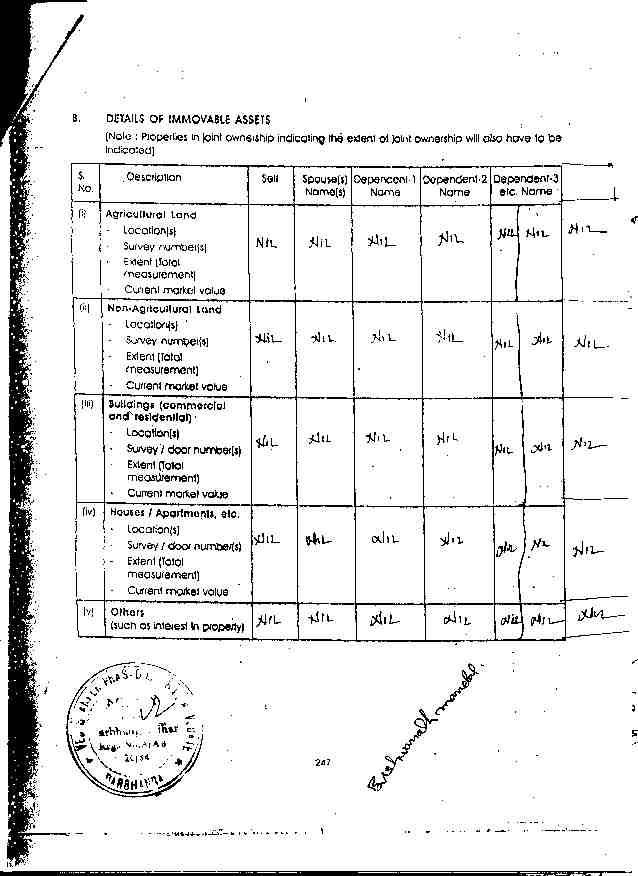 B. DETAILS OF IMMOVABLE ASSETS
(Note : Properties in joint ownership indicating the extent of joint ownership will also have to be
indicated)
S. No. Description Self Spouse(s) Name(s) Dependent-1 Name Dependent-2 Name Dependent-3 etc. Name
(i) Agricultural Land
- Location(s)
- Survey number(s)
- Extent (Total
measurement)
- Current market value
NIL NIL NIL NIL NIL NIL NIL
(ii) Non-Agricultural Land
- Location(s)
- Survey number(s)
- Extent (Total
measurement)
- Current market value
NIL NIL NIL NIL NIL NIL NIL
(iii) Buildings (commercial
and residential)
- Location(s)
- Survey / door number(s)
- Extent (Total
measurement)
- Current market value
NIL NIL NIL NIL NIL NIL NIL
(iv) Houses / Apartments, etc.
- Location(s)
- Survey / door number(s)
- Extent (Total
measurement)
- Current market value
NIL NIL NIL NIL NIL NIL NIL
(v) Others
(such as interest in property)
NIL NIL NIL NIL NIL NIL NIL
DARBHANGA
247